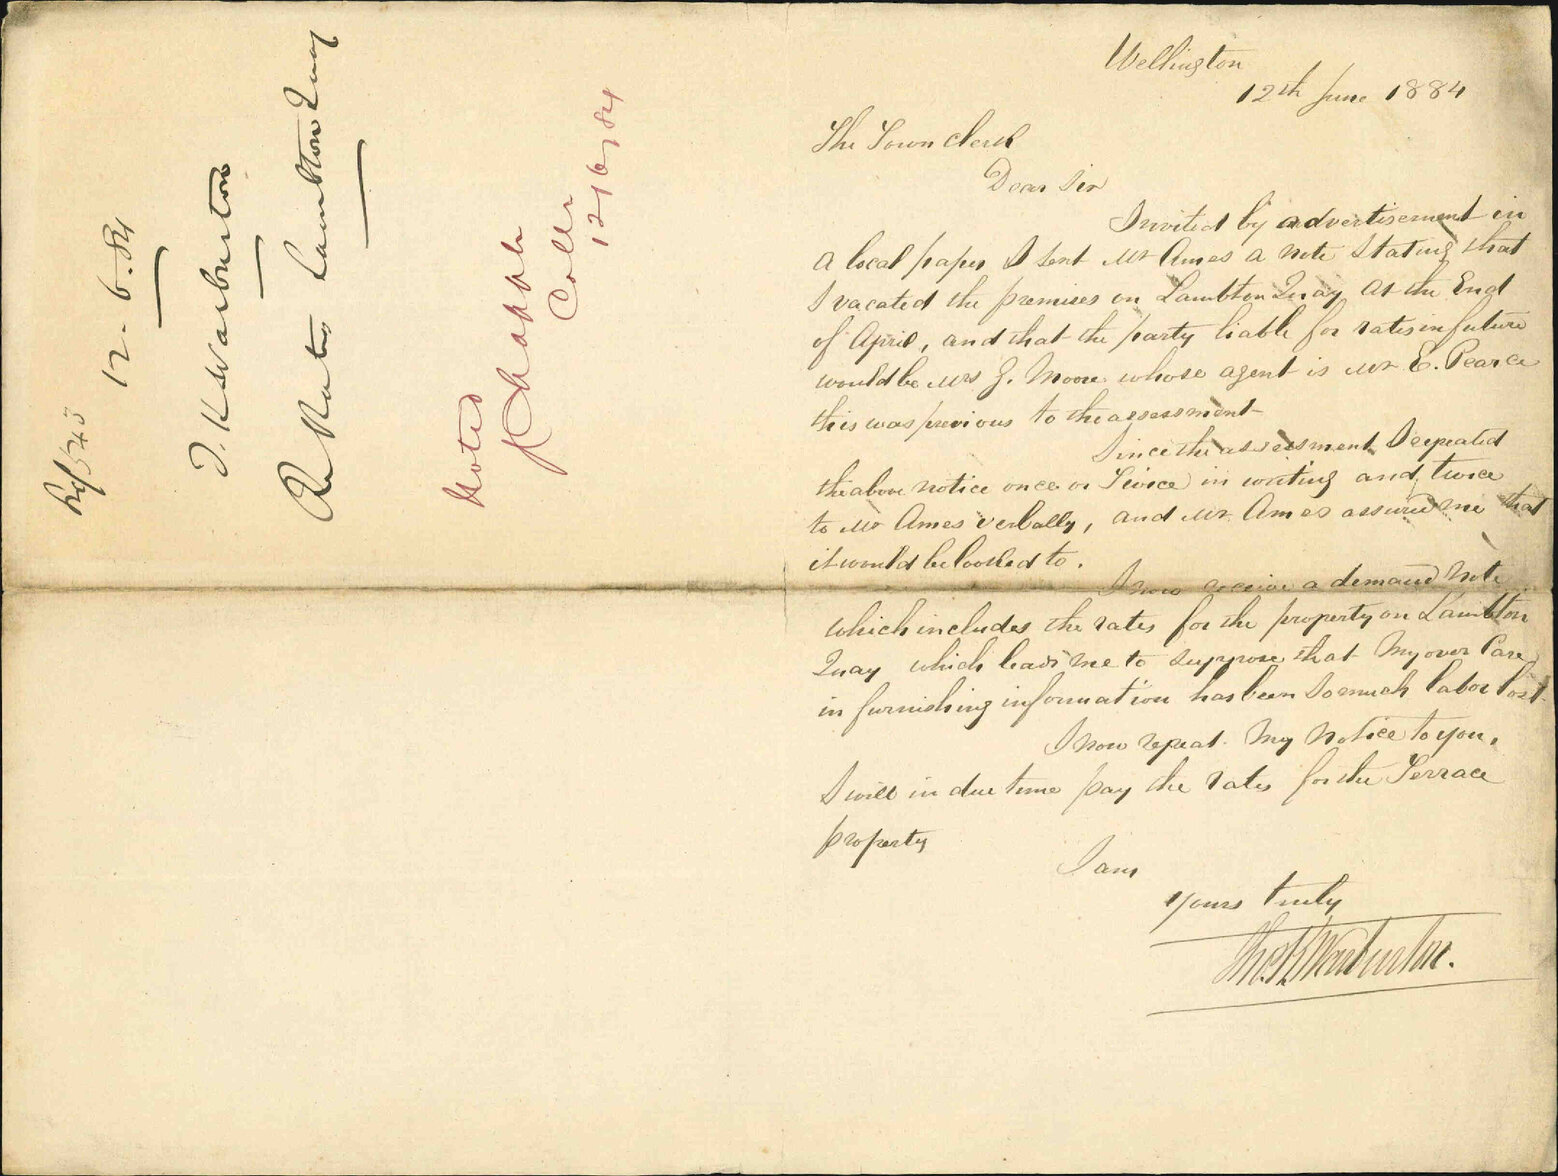 Ref 545
12-6.84
T. K Warburton
Re Rates Lambton Quay
Noted
Chapple
Collr
12/6/84
Wellington
12th June 1884
The Town Clerk
Dear Sir
Invited by advertisement in
a local paper I sent Mr Ames a note stating that
I vacated the premises on Lambton Quay at the End
of April, and that the party liable for rates in future
would be Mrs J. Moore whose agent is Mr E. Pearce
this was previous to the assessment-
Since the assessment I repeated
the above notice once or Twice in writing and twice
to Mr Ames verbally, and Mr Ames assured me that
it would be looked to.
I now receive a demand note
which includes the rates for the property on Lambton
Quay which leads me to suppose that My over Care
in furnishing information has been So much labor lost.
I now repeat My Notice to you,
I will in due time pay the rates for the Terrace
property
I am
yours truly
Thos. K Warburton.